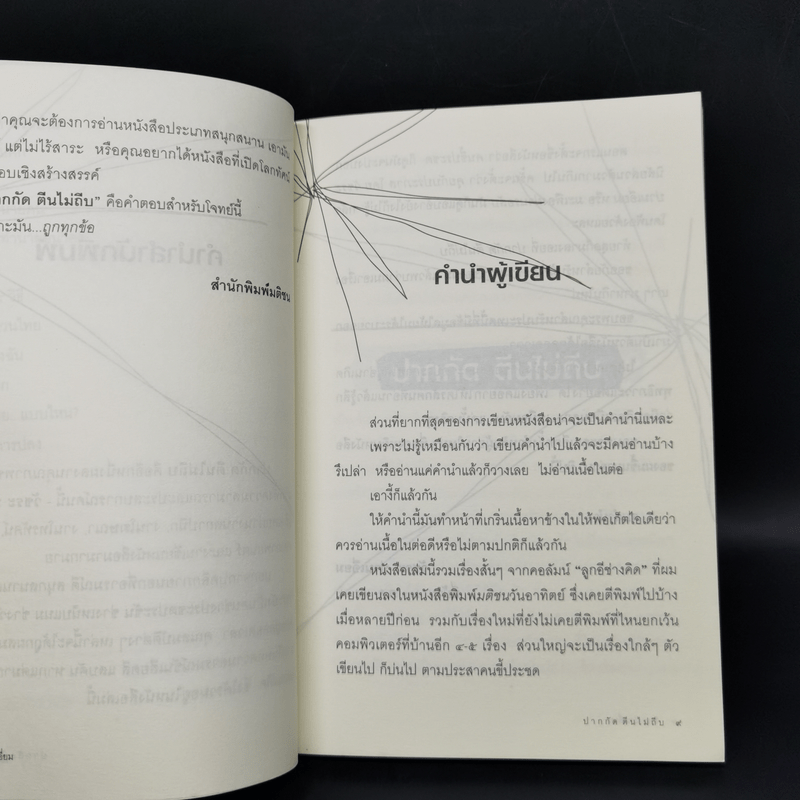 คุณจะต้องการอ่านหนังสือประเภทสนุกสนาน เอามัน
แต่ไม่ไร้สาระ หรือคุณอยากได้หนังสือที่เปิดโลกทัศน์
อบเชิงสร้างสรรค์
ากกัด ตีนไม่ถีบ" คือคำตอบสำหรับโจทย์นี้
าะมัน...ถูกทุกข้อ
สำนักพิมพ์มติชน
คำนำผู้เขียน
ส่วนที่ยากที่สุดของการเขียนหนังสือน่าจะเป็นคำนำนี่แหละ
เพราะไม่รู้เหมือนกันว่า เขียนคำนำไปแล้วจะมีคนอ่านบ้าง
รึเปล่า หรืออ่านแค่คำนำแล้วก็วางเลย ไม่อ่านเนื้อในต่อ
เอางี้ก็แล้วกัน
ให้คำนำนี้มันทำหน้าที่เกริ่นเนื้อหาข้างในให้พอเก็ตไอเดียว่า
ควรอ่านเนื้อในต่อดีหรือไม่ตามปกติก็แล้วกัน
หนังสือเล่มนี้รวมเรื่องสั้นๆ จากคอลัมน์ "ลูกอีช่างคิด" ที่ผม
เคยเขียนลงในหนังสือพิมพ์มติชนวันอาทิตย์ ซึ่งเคยตีพิมพ์ไปบ้าง
เมื่อหลายปีก่อน รวมกับเรื่องใหม่ที่ยังไม่เคยตีพิมพ์ที่ไหนยกเว้น
คอมพิวเตอร์ที่บ้านอีก ๔-๕ เรื่อง ส่วนใหญ่จะเป็นเรื่องใกล้ๆ ตัว
เขียนไป ก็บ่นไป ตามประสาคนขี้ประชด
ปากกัด ตีนไม่ถีบ ๙